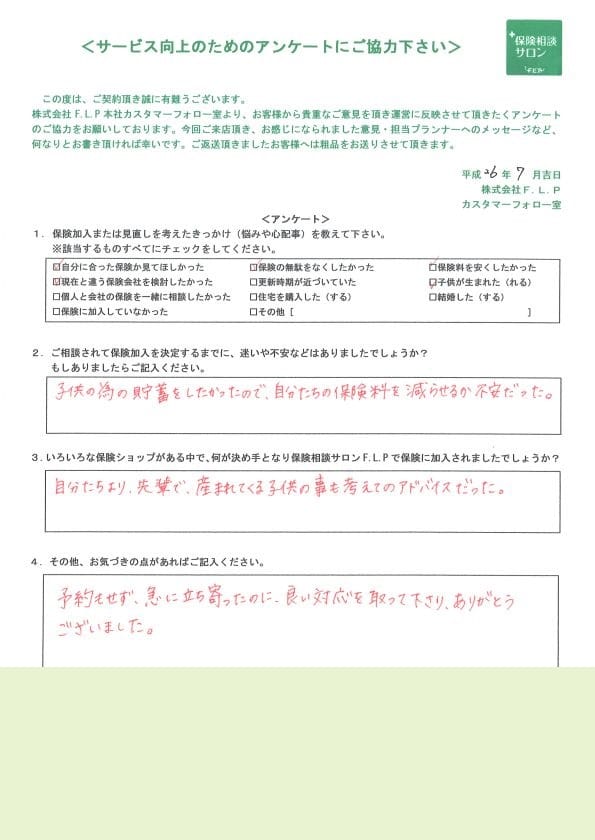 ＜サービス向上のためのアンケートにご協力下さい＞
保険相談
サロン
この度は、ご契約頂き誠に有難うございます。
株式会社Ｆ.Ｌ.Ｐ本社カスタマーフォロー室より、お客様から貴重なご意見を頂き運営に反映させて頂きたくアンケート
のご協力をお願いしております。今回ご来店頂き、お感じになられました意見・担当プランナーへのメッセージなど、
何なりとお書き頂ければ幸いです。ご返送頂きましたお客様へは粗品をお送りさせて頂きます。
平成 26 年 7 月吉日
株式会社Ｆ.Ｌ.Ｐ
カスタマーフォロー室
＜アンケート＞
１．保険加入または見直しを考えたきっかけ（悩みや心配事）を教えて下さい。
※該当するものすべてにチェックをしてください。
☑自分に合った保険か見てほしかった ☑保険の無駄をなくしたかった ☑保険料を安くしたかった
☑現在と違う保険会社を検討したかった □更新時期が近づいていた ☑子供が生まれた（れる）
□個人と会社の保険を一緒に相談したかった □住宅を購入した（する） □結婚した（する）
□保険に加入していなかった □その他［ ］
２．ご相談されて保険加入を決定するまでに、迷いや不安などはありましたでしょうか？
もしありましたらご記入ください。
子供の為の貯蓄をしたかったので、自分たちの保険料を減らせるか不安だった。
３.いろいろな保険ショップがある中で、何が決め手となり保険相談サロンF.L.Pで保険に加入されましたでしょうか？
自分たちより、先輩で、産まれてくる子供の事も考えてのアドバイスだった。
４．その他、お気づきの点があればご記入ください。
予約もせず、急に立ち寄ったのに、良い対応を取って下さり、ありがとう
ございました。